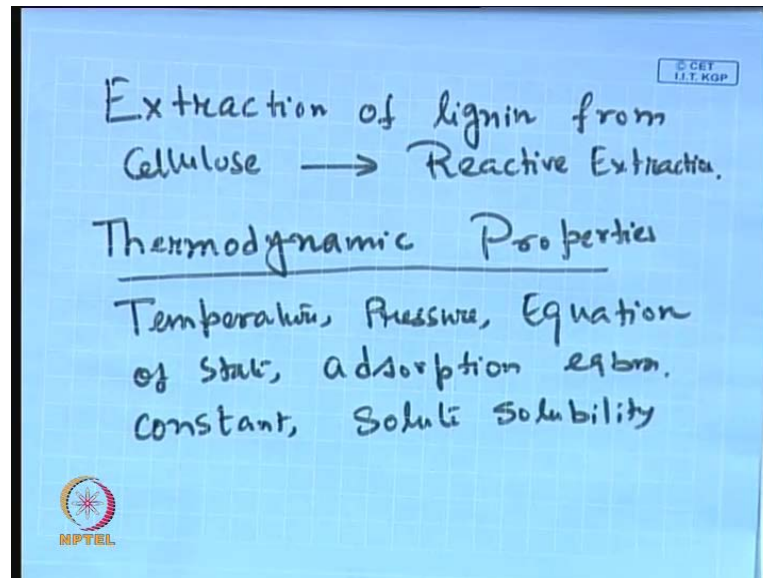 © CET
I.I.T. KGP
Extraction of lignin from
Cellulose → Reactive Extraction.
Thermodynamic Properties
Temperature, Pressure, Equation
of State, adsorption eqbm.
constant, Solute solubility
NPTEL